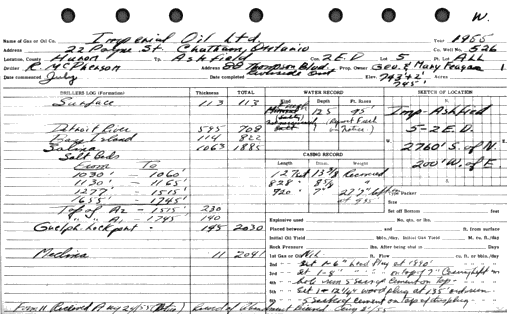 W.
Name of Gas or Oil Co. Imperial Oil Ltd. Year 1955
Address 22 Payne St. Chatham, Ontario Co. Well No. 526
Location, County Huron Tp. Ashfield Con. 2 E.D Lot 5 Pt. Lot ALL
Driller R. McPherson Address 88 Thompson Blvd. Riverside Ont Prop. Owner Geo. & Mary
Date commenced July Date completed Elev. 743+2' Acres
745'
DRILLERS LOG (Formation) Thickness TOTAL WATER RECORD SKETCH OF LOCATION
Surface 113 113 Kind Depth Ft. Rises
Fresh
Mineral 125 95'
(Salty) Imp-Ashfield
Salt (Report Fail
Detroit River 595 708 on Notice.) 5-2 E.D.
Bass Island 114 822
Salina 1063 1885 CASING RECORD 2760' S. of N.
Salt Beds Length Diam. Weight 200' W. of E.
From To
1030' - 1060' 127 13 3/8 Recovered
1130' - 1165' 828 8 5/8 "
1277' - 1515' 920 7" 27' 7" left
1655' - 1745' at 995' Packer
Top of A2 - 1515' 230 Set off Bottom feet
" " A1 - 1745' 140 Explosive used No. qts. or lbs.
Guelph Lockport 145 2030 Placed between and ft. from surface
Initial Oil Yield bbls./day. Initial Gas Yield M. cu. ft./day
Rock Pressure lbs. After being shut in Days
Medina 11 2041 1st Gas or Oil at Nil ft. Flow cu. ft. or bbls./day
2nd " " Set 1-6" lead Plug at 1890'
3rd " " Set 1-8' " " on top of 7"
4th " " hole run 5 sacks cement on top
5th " " Set 1 wood plug at 135' and run
6th " " 5 sacks of cement on top of this plug
Form 11 Received Aug 24/55 Record of Abandonment Received Aug 2/55